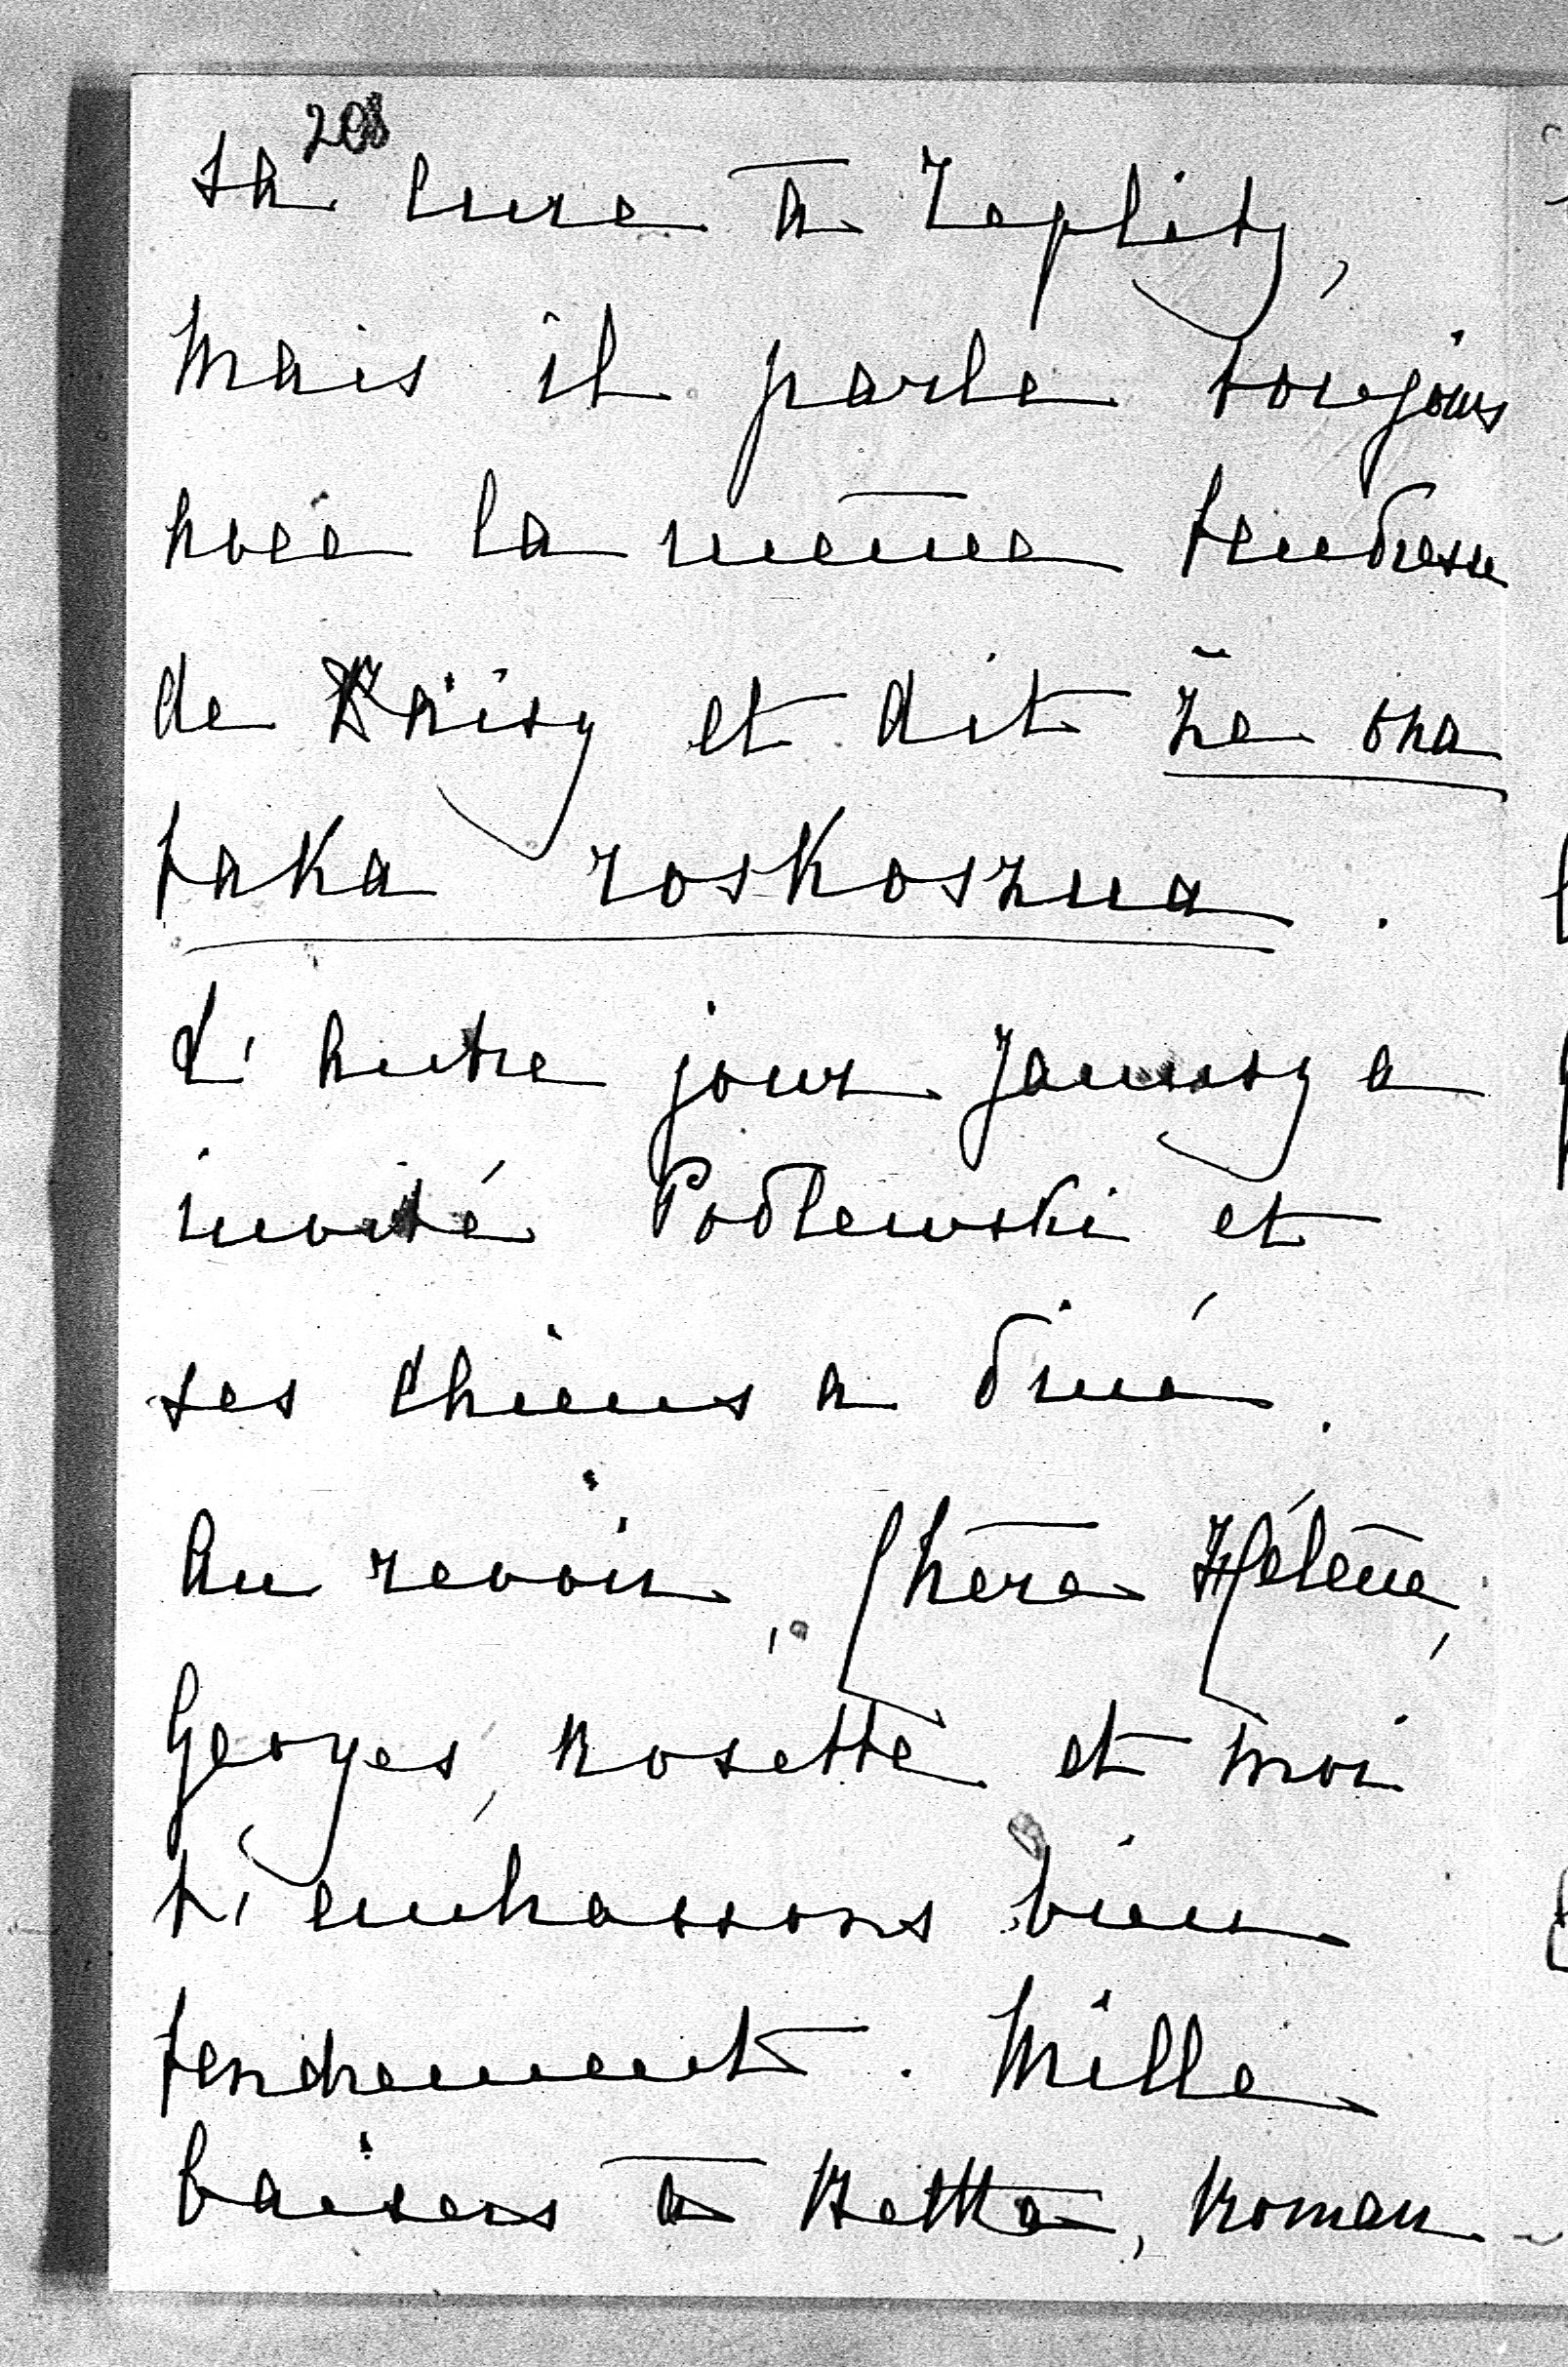 208
sa cure à Teplitz,
mais il parle toujours
avec la même tendresse
de Daisy et dit że ona
taka roskoszna.
L'autre jour Jamesy a
invité Podlewski et
ses chiens a diné.
Au revoir, chère Hélène,
Georges, Rosette et moi
t'embrassons bien
tendrement. Mille
baisers à Betka, Roman